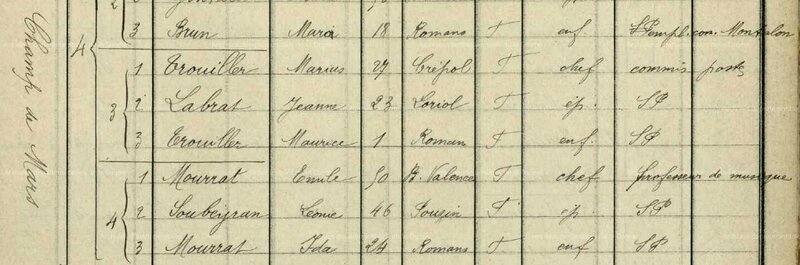 Champ de Mars
4
3 Brun Maria 18 Romans F enf. SP empl. com. Montalon
3
1 Trouiller Marius 27 Crépol F chef commis postes
2 Labrat Jeanne 23 Loriol F ép. SP
3 Trouiller Maurice 1 Romans F enf. SP
4
1 Mourrat Emile 50 B. Valence F chef professeur de musique
2 Soubeyran Léonie 46 Pouzin F ép. SP
3 Mourrat Ida 24 Romans F enf SP